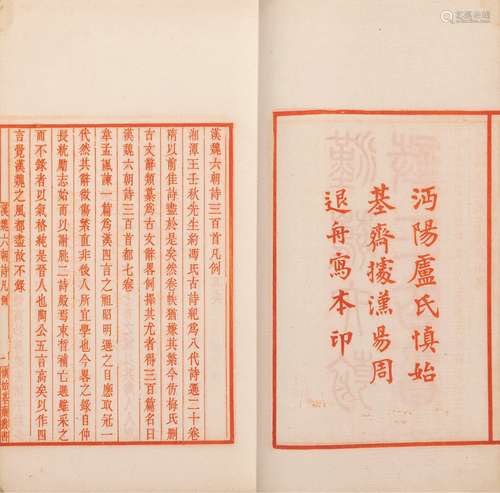 沔陽盧氏慎始
基齋據漢昜周
退舟寫本印
漢魏六朝詩三百首凡例
湘潭王壬秋先生約馮氏古詩紀爲八代詩選二十卷
隋以前佳詩盡於是矣然卷帙猶嫌其繁今仿梅氏刪
古文辭類纂爲古文辭畧例擇其尤者得三百篇名曰
漢魏六朝詩三百首都七卷
韋孟諷諫一篇漢四言之冠昭明選之自應取冠一
代然其辭微傷繁直非後人所宜學也今畧之錄自仲
長秋勵志始而以謝朓二詩殿焉束晳補亡選雖采之
而不錄者以氣格純是晉人也陶公五言高矣以作四
言覺漢魏之風都盡故不錄
漢魏六朝詩凡例
一
慎始基齋